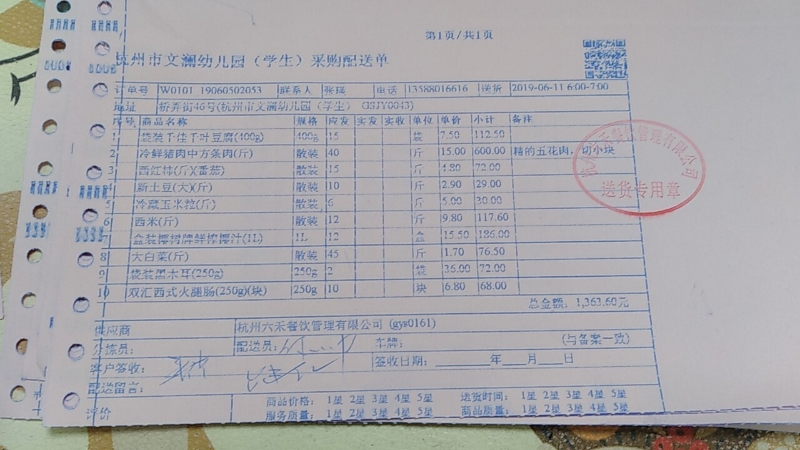 第1页/共1页
杭州市文澜幼儿园（学生）采购配送单
订单号 W0101 19060502053 联系人 张瑶 电话 13588016616 送货 2019-06-11 6:00-7:00
地址 桥弄街46号(杭州市文澜幼儿园（学生） GSJY0043)
序号 商品名称 规格 应发 实发 实收 单位 单价 小计 备注
1 袋装千佳千叶豆腐(400g) 400g 15 袋 7.50 112.50
2 冷鲜猪肉中方条肉(斤) 散装 40 斤 15.00 600.00 精的五花肉，切小块
3 西红柿(斤)(番茄) 散装 15 斤 4.80 72.00
4 新土豆(大)(斤) 散装 10 斤 2.90 29.00
5 冷藏玉米粒(斤) 散装 6 斤 5.00 30.00
6 西米(斤) 散装 12 斤 9.80 117.60
盒装椰树牌鲜榨椰汁(1L) 1L 12 盒 15.50 186.00
8 大白菜(斤) 散装 45 斤 1.70 76.50
9 袋装黑木耳(250g) 250g 2 袋 36.00 72.00
10 双汇西式火腿肠(250g)(块) 250g 10 块 6.80 68.00
送货专用章
总金额: 1,363.60元
供应商 杭州六禾餐饮管理有限公司 (gys0161)
分拣员: 配送员: 车牌: (与备案一致)
客户签收: 签收日期: 年 月 日
配送留言:
评价 商品价格: 1星 2星 3星 4星 5星 送货时间: 1星 2星 3星 4星 5星
服务质量: 1星 2星 3星 4星 5星 商品质量: 1星 2星 3星 4星 5星